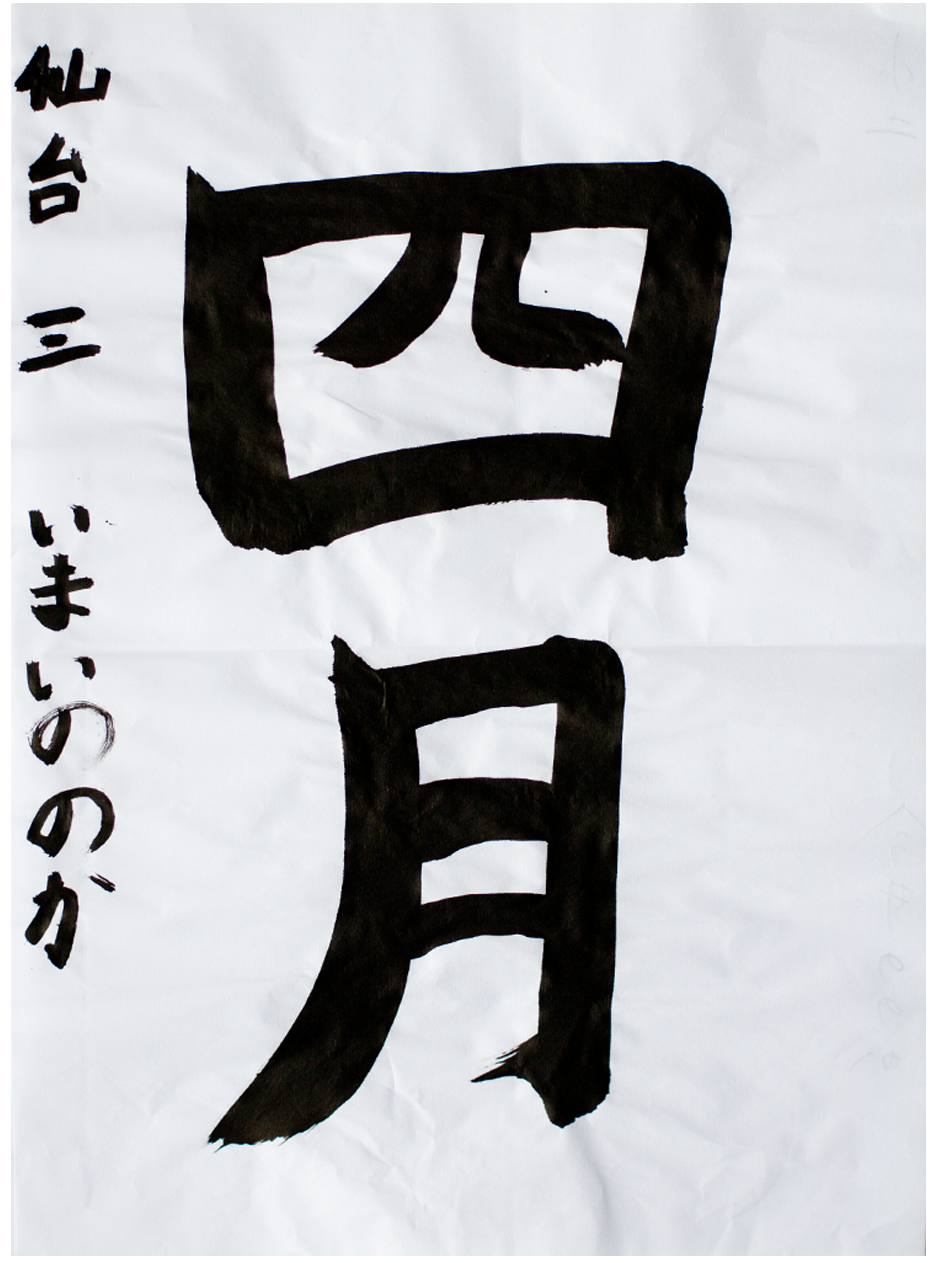 四月
仙台 三 いまいののか